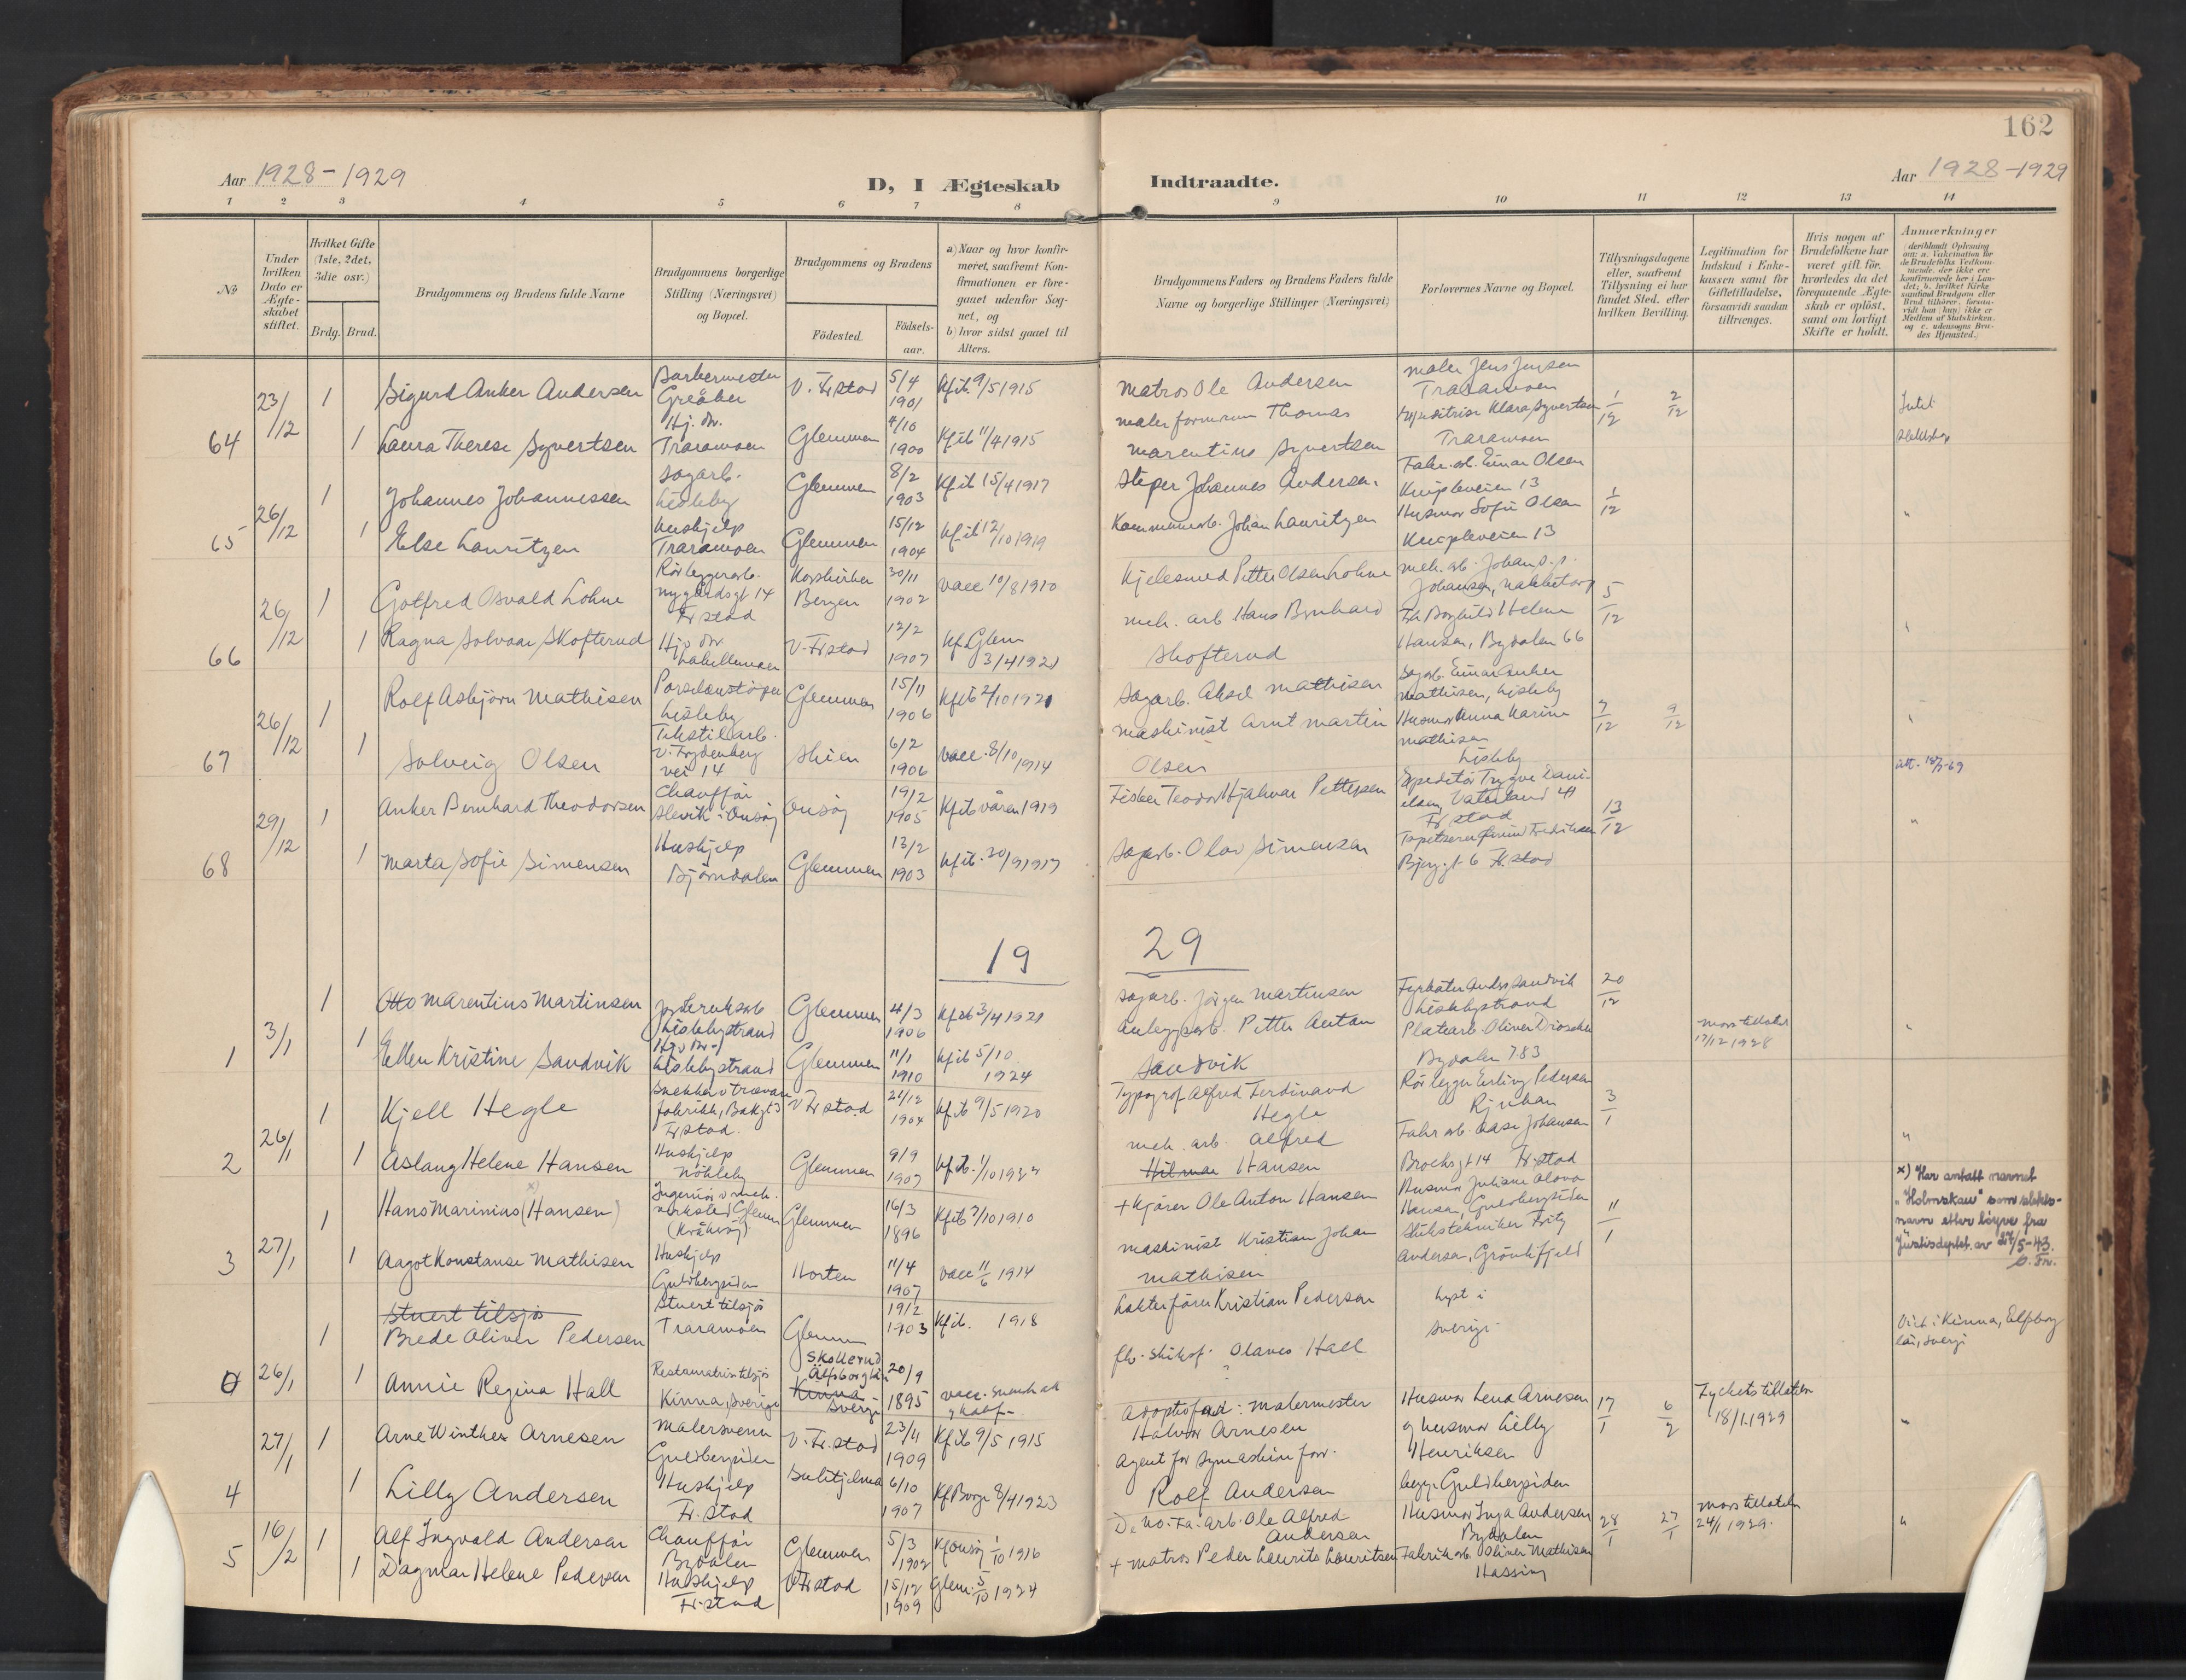 162
Aar 1928-1929
D, I Ægteskab
Indtraadte.
Aar 1928-1929
1 2 3 4 5 6 7 8 9 10 11 12 13 14
No
Under hvilken Dato er Ægteskabet stiftet.
Hvilket Gifte (1ste, 2det, 3die osv.)
Brdg. Brud.
Brudgommens og Brudens fulde Navne
Brudgommens borgerlige Stilling (Næringsvei) og Bopæl.
Brudgommens og Brudens
Födested.
Födselsaar.
a) Naar og hvor konfirmeret, saafremt Konfirmationen er foregaaet udenfor Sognet, og
b) hvor sidst gaaet til Alters.
Brudgommens Faders og Brudens Faders fulde Navne og borgerlige Stillinger (Næringsvei)
Forlovernes Navne og Bopæl.
Tillysningsdagene eller, saafremt Tillysning ei har fundet Sted, efter hvilken Bevilling.
Legitimation for Indskud i Enkekassen samt for Giftetilladelse, forsaavidt saadan tiltrænges.
Hvis nogen af Brudefolkene har været gift för, hvorledes da det foregaaende Ægteskab er oplöst, samt om lovligt Skifte er holdt.
Anmærkninger
64
23/12
1 Sigurd Anker Andersen
Barbermester
Greåker
V. Fr.stad
5/4 1901
Kf ib 9/5 1915
Matros Ole Andersen
maler Jens Jensen
Traramoen
1/12 2/12
1 Laura Therese Syvertsen
Hj. dtr.
Traramoen
Glemmen
4/10 1900
Kf ib 11/4 1915
malerformann Thomas
Marentius Syvertsen
Klara Syvertsen
Traramoen
65
26/12
1 Johannes Johannessen
Sagarb.
Lisleby
Glemmen
8/2 1903
Kf ib 15/4 1917
Støper Johannes Andersen
Fabr. arb. Einar Olsen
Knipleveien 13
1/12
1 Else Lauritzen
Hushjelp
Traramoen
Glemmen
15/12 1904
Kf ib 12/10 1919
Kommunearb. Johan Lauritzen
Husmor Sofie Olsen
Knipleveien 13
66
26/12
1 Gotfred Osvald Lohne
Rørleggerarb.
Nygårdsgt 14
Fr stad
Korskirken
Bergen
30/11 1902
vacc 10/8 1910
Kjelesmed Petter Olsen Lohne
mek. arb. Johan
Johansen, Nabbetorp
5/12
1 Ragna Solvaar Skofterud
Hjv dtr
V. Fr stad
12/2 1907
Kf Glem
3/4 1921
mek. arb Hans Bernhard
Skofterud
Frk Borghild Helene
Hansen, Bydalen 66
67
26/12
1 Rolf Asbjörn Mathisen
Lisleby
Glemmen
15/11 1906
Kf ib 2/10 1921
Sagarb. Aksel Mathisen
Sagarb. Einar Anker
Mathisen, Lisleby
7/12 9/12
1 Solveig Olsen
Tekstilarb.
V. Frydenberg
vei 14
Skien
6/2 1906
vacc. 8/10 1914
maskinist Arnt Martin
Olsen
Husmor Anna Karine
Mathisen
Lisleby
68
29/12
1 Anker Bernhard Theodorsen
Chauffør
Slevik i Onsøy
Onsøy
19/2 1905
Kf ib våren 1919
Fisker Teodor Hjalmar Pettersen
Ekspeditør Trygve Danielsen, Vaterland 41
Fr stad
13/12
1 Marta Sofie Simensen
Hushjelp
Bjørndalen
Glemmen
13/2 1903
Kf ib. 30/9 1917
Sagarb. Olav Simensen
Bjergt 6 Fr.stad
19 29
1
3/1
1 Otto Marentius Martinsen
Lislebystrand
Glemmen
4/3 1906
Kf ib 3/4 1921
Sagarb. Jörgen Martinsen
Fyrbøter Anders Sandvik
Lislebystrand
20/12
1 Ellen Kristine Sandvik
Lislebystrand
Glemmen
11/1 1910
Kf ib 5/10
1924
Anleggsarb. Petter Anton
Sandvik
Platearb. Oliver
Bydalen 783
mors tillatelse
17/12 1928
2
26/1
1 Kjell Hegle
Snekker v Trævarefabrikk, Bakgt 3
Fr stad.
V Fr stad
24/12 1904
Kf ib 9/5 1920
Typograf Alfred Ferdinand
Hegle
Rørlegger Erling Pedersen
Rjukan
3/1
1 Aslaug Helene Hansen
Hushjelp
Nökleby
Glemmen
9/9 1907
Kf ib. 1/10 1922
mek. arb. Alfred
Hilmar Hansen
Fabr arb. Aase Johansen
Brochsgt 14 Fr.stad
3
27/1
1 Hans Marinius (Hansen) x)
Ingeniør v mek.
verksted Glemm
(Kråkerøy)
Glemmen
16/3 1896
Kf ib 2/10 1910
+ Kjører Ole Anton Hansen
Husmor Juliane Olava
Hansen, Guldbergsiden
11/1
x) Har antatt navnet
"Holmskau" som slektsnavn etter løyve fra
Justisdeptet. av 24/5-43.
1 Aagot Konstanse Mathisen
Hushjelp
Guldbergsiden
Horten
11/4 1907
vacc 11/6 1914
maskinist Kristian Johan
Mathisen
Fritz
Andersen, Grönlifjeld
0
26/1
Stuert tilsjøs
1 Brede Oliver Pedersen
Stuert tilsjøs
Traramoen
Glemm
19/2 1903
Kf ib. 1918
Lekterfører Kristian Pedersen
lyst i
Sverige
Viet i Kinna, Elfsborg
län, Sverige
1 Annie Regina Hall
Restauratrise tilsjøs
Kinna, Sverige
Skallerud
Älfsborg län
Kinna
Sverige
20/9 1895
Olaves Hall
4
27/1
1 Arne Winther Arnesen
Malersvenn
Guldbergsiden
V. Fr. stad
23/4 1909
Kf ib 9/5 1915
Adoptivfad: Malermester
Halvor Arnesen
Husmor Lena Arnesen
og husmor Lilly
Henriksen
begge Guldbergsiden
17/1 6/2
Fylkets tillatelse
18/1 1929
1 Lilly Andersen
Hushjelp
Fr. stad
Sulitjelma
6/10 1907
Kf Borge 8/4 1923
Agent for symaskin forr.
Rolf Andersen
5
16/2
1 Alf Ingvald Andersen
Chauffør
Bydalen
Glemmen
5/3 1902
Kf Onsøy 1/10 1916
Ole Alfred
Andersen
Husmor Inga Andersen
Bydalen
28/1 27/1
Mors tillatelse
24/1 1929.
1 Dagmar Helene Pedersen
Hushjelp
Fr.stad
V Fr stad
15/12 1909
Glem. 5/10 1924
+ Matros Peder Laurits Lauritsen
Fabrikarb. Oliver Mathisen
Hassing